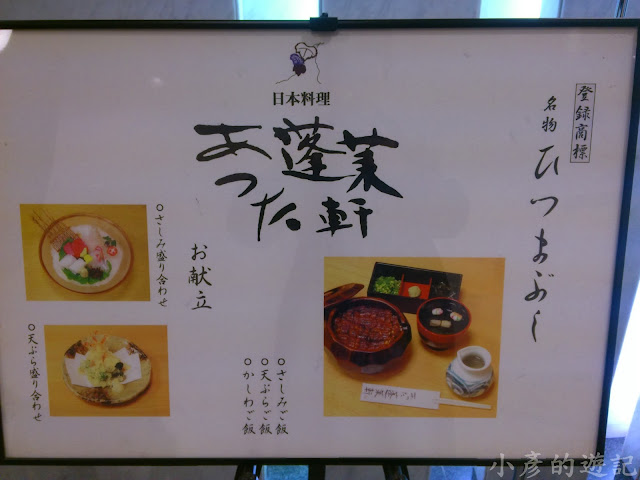 登録商標
名物 ひつまぶし
日本料理
あつた
蓬莱軒
お献立
○さしみ盛り合わせ
○天ぷら盛り合わせ
○さしみご飯
○天ぷらご飯
○かしわご飯
小彥的遊記